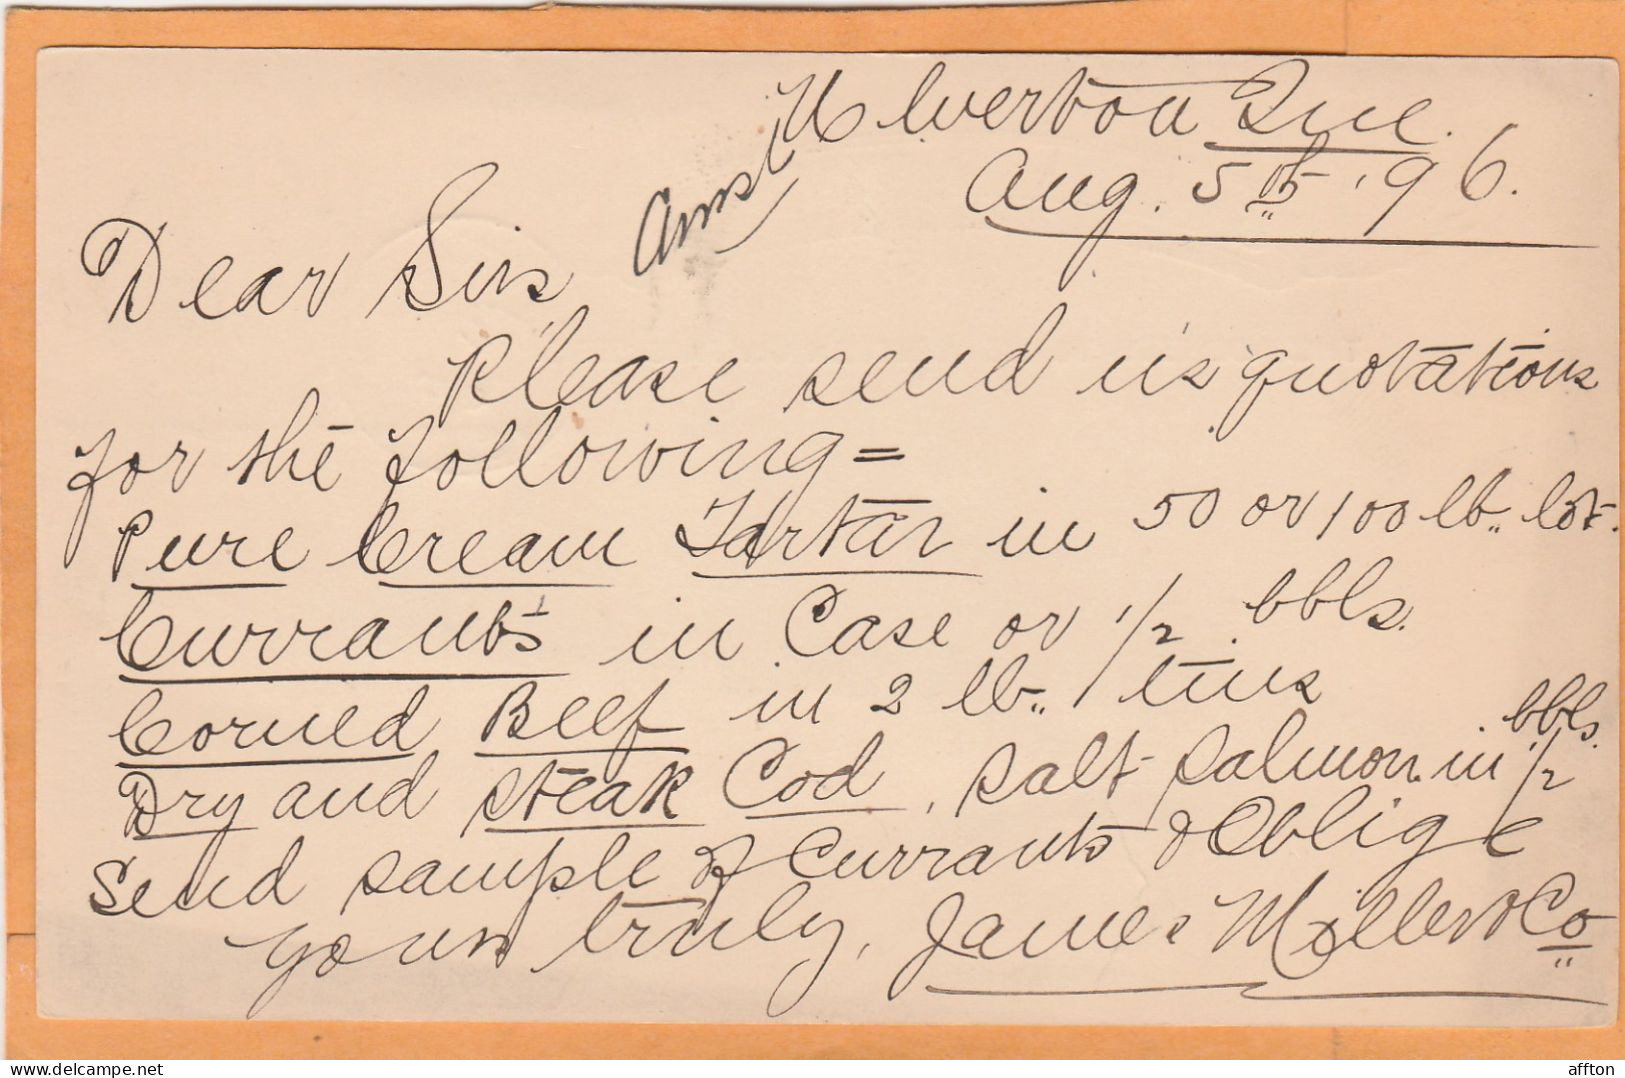 Ulverton Que.
Aug. 5th, 96.
Ansd
Dear Sirs,
Please send us quotations
for the following =
Pure Cream Tartar in 50 or 100 lb. lot.
Currants in Case or 1/2 bbls.
Corned Beef in 2 lb. tins
Dry and Steak Cod, Salt Salmon in 1/2 bbls.
Send sample of Currants & Oblige
Yours truly, James Miller & Co
affton